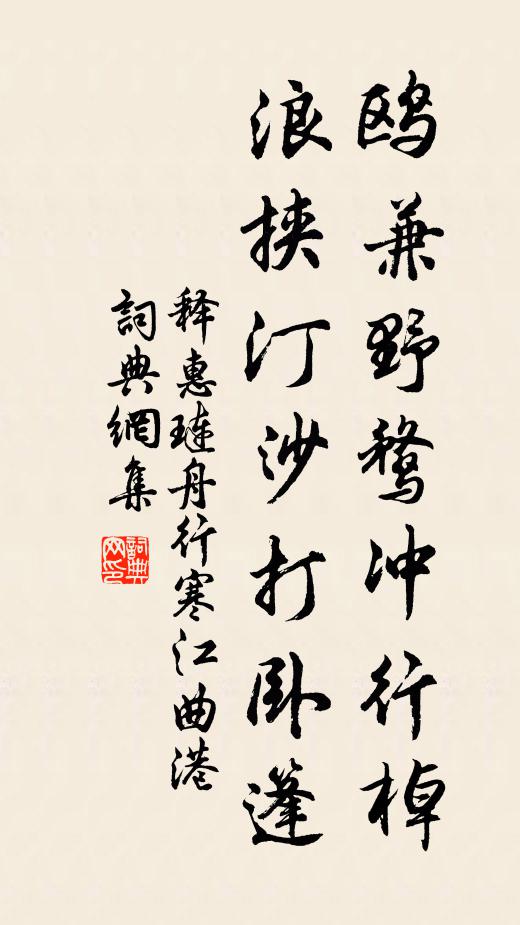 鸥兼野鹜冲行棹
浪挟汀沙打卧篷
释惠琏舟行寒江曲港
詞典網集
詞典网印